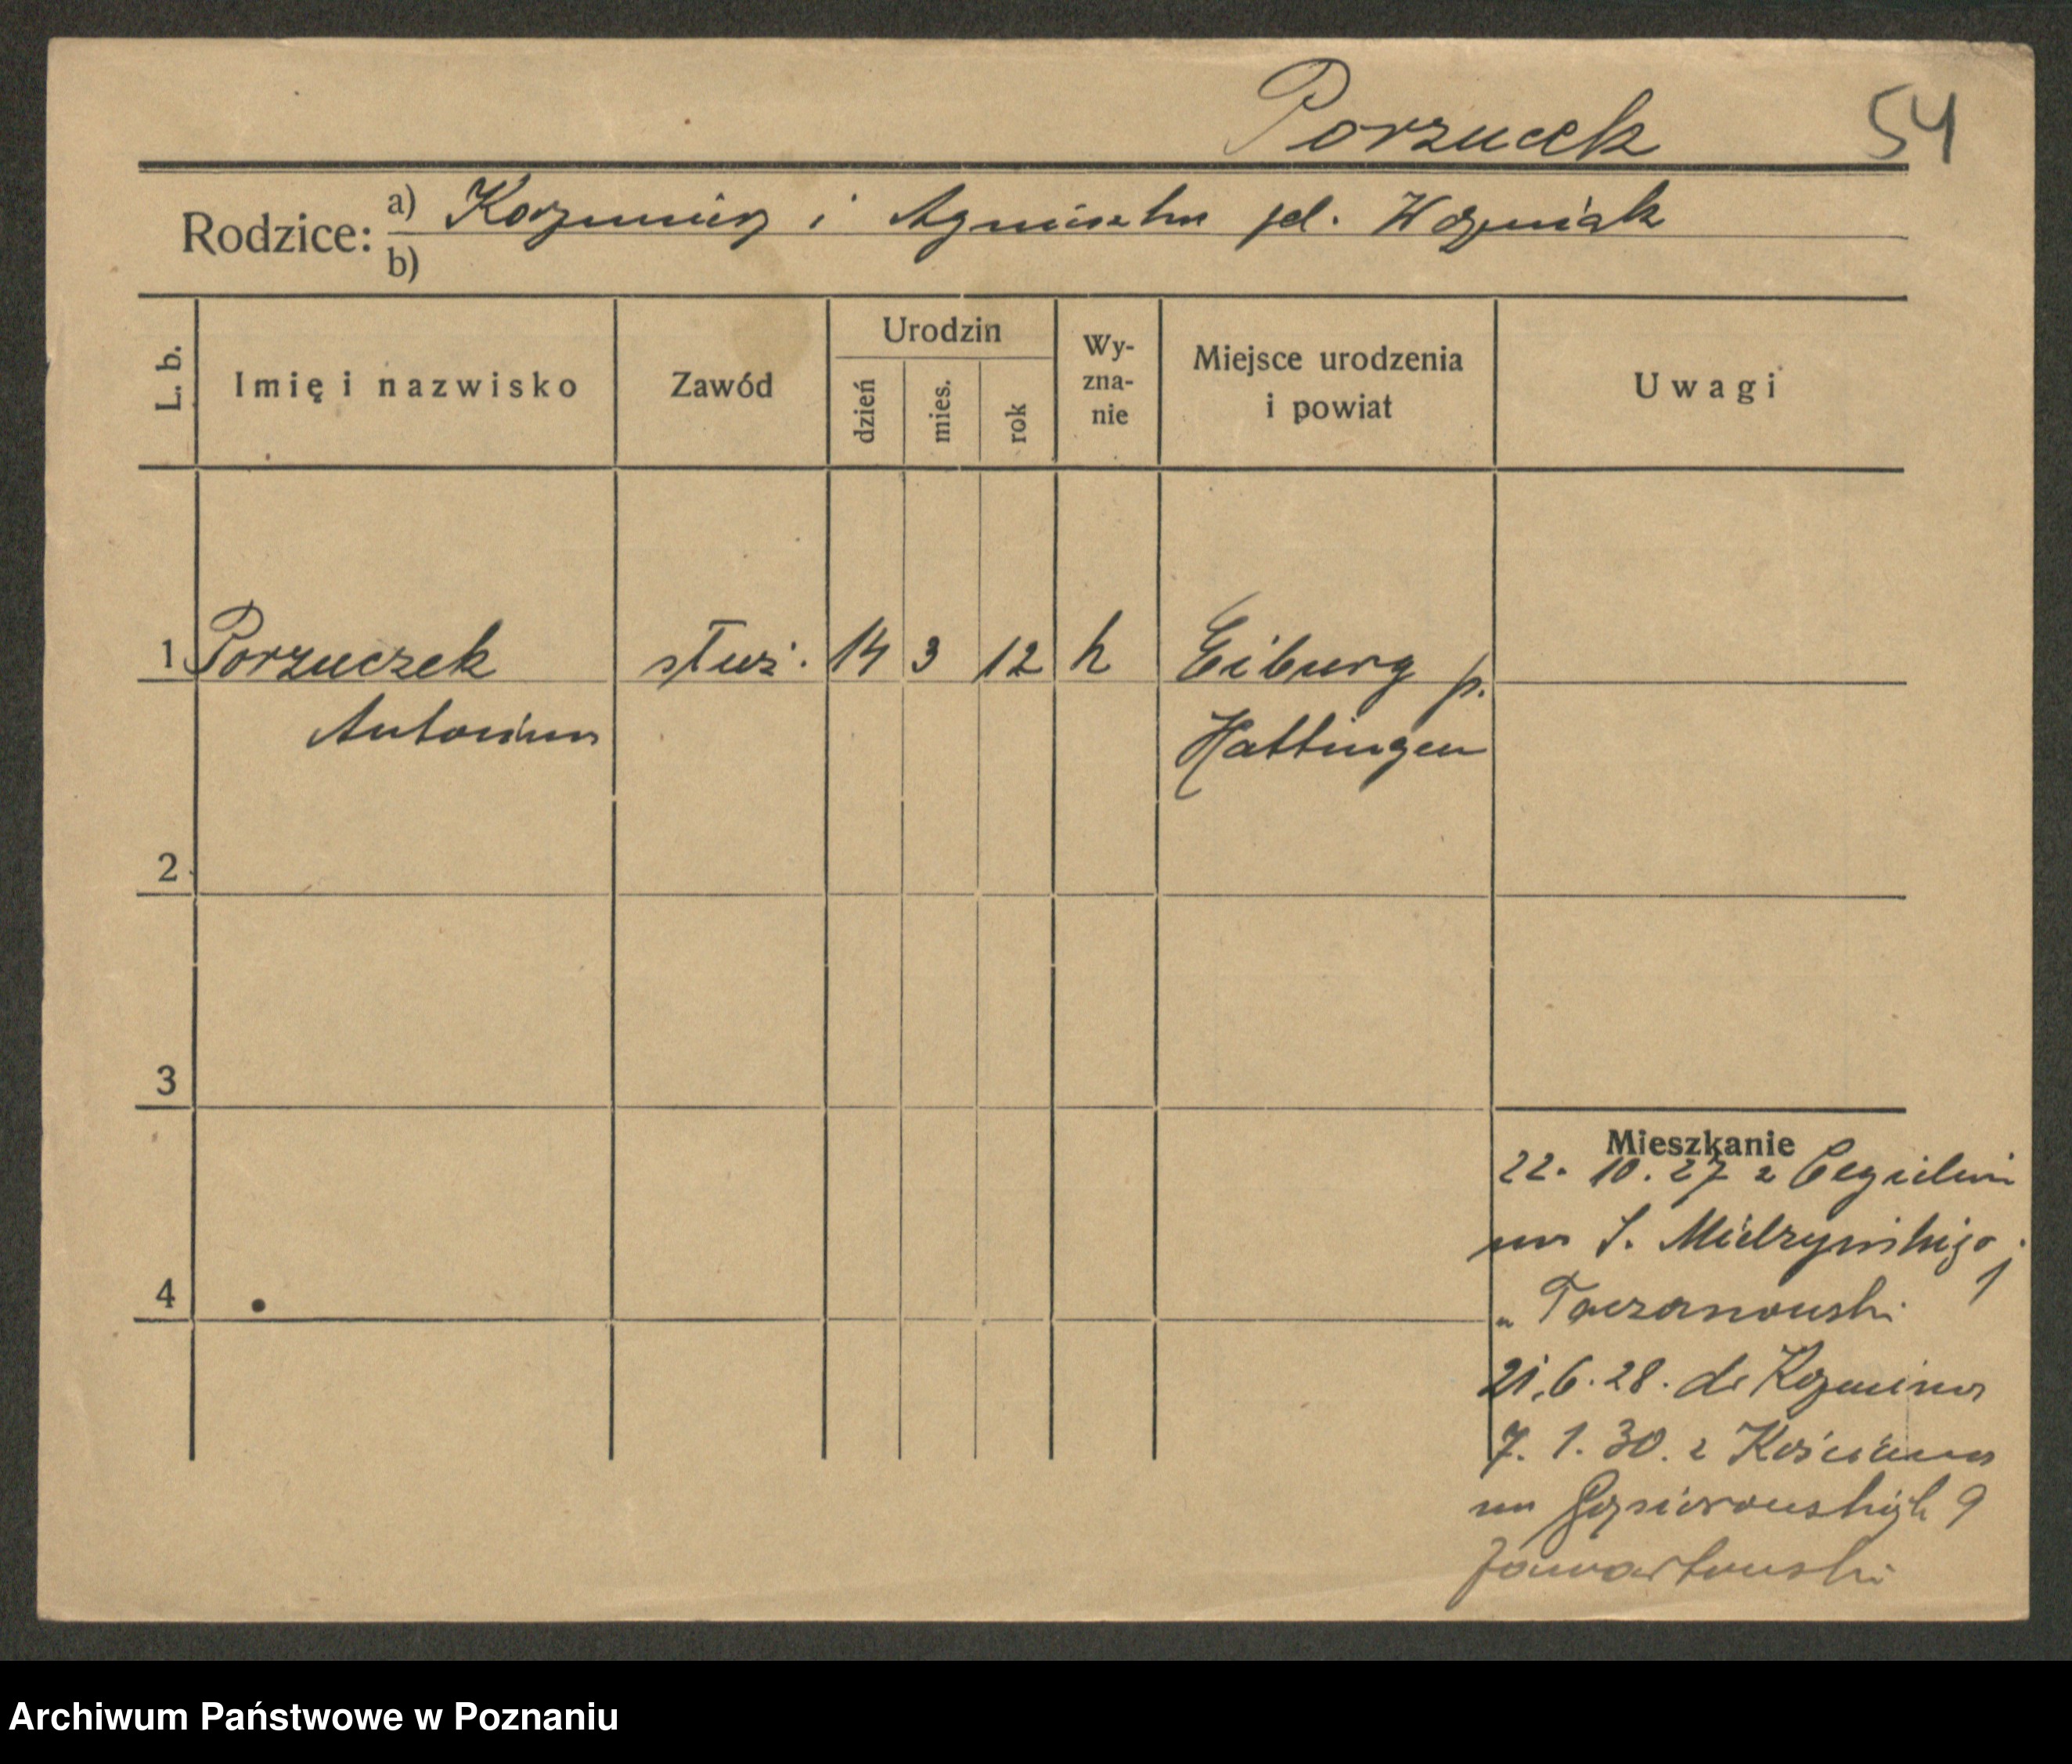 Porzucek 54
Rodzice: a) Kazimierz i Agnieszka jd. Woźniak
b)
L. b. Imię i nazwisko Zawód Urodzin dzień mies. rok Wy-zna-nie Miejsce urodzenia i powiat Uwagi
1 Porzuczek służ. 14 3 12 k Eiburg p.
Antonina Hattingen
2
3
Mieszkanie
22. 10. 27 z Cegielni
na S. Mielżyńskiego
4 " Taczanowski 1
21. 6. 28. do Koźmina
7. 1. 30. z Kościana
na Gąsiorowskich 9
Archiwum Państwowe w Poznaniu